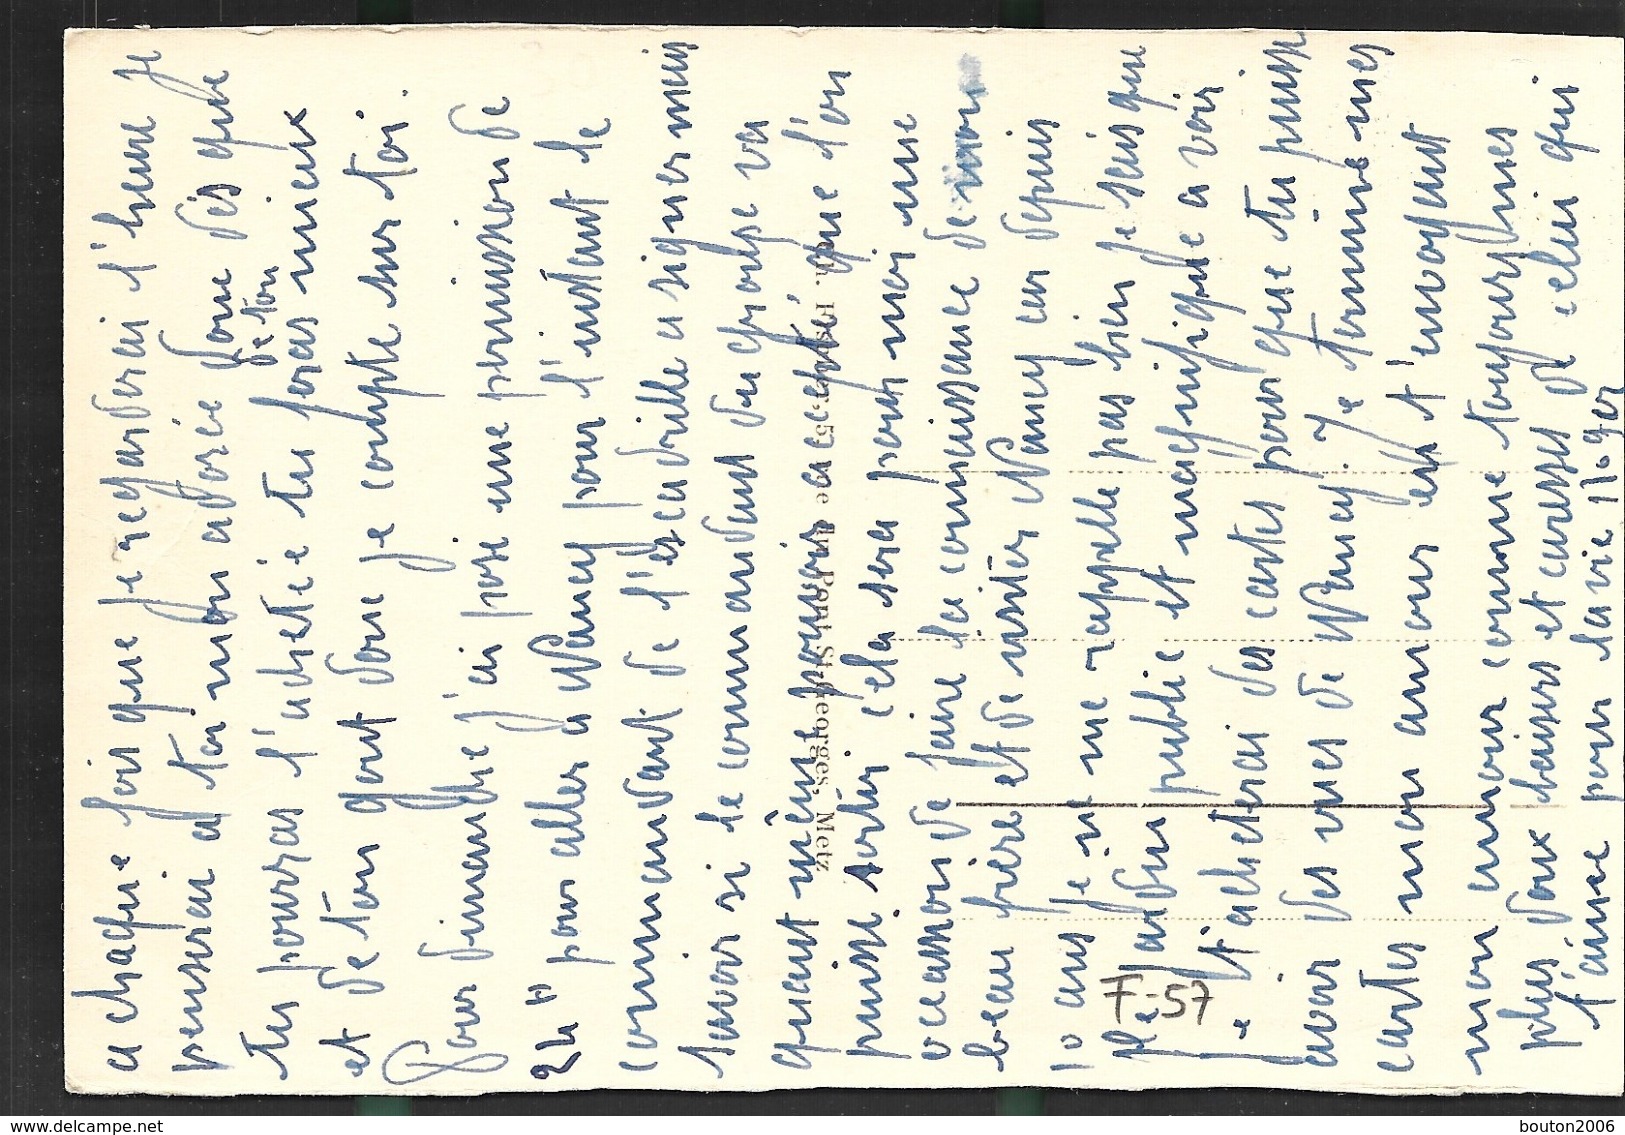 a chaque fois que je regarderai l'heure je
penserai a toi mon adorée donc dès que
tu pourras l'acheté e tu feras mieux
de ton
et de ton gout donc je compte sur toi.
Pour dimanche j'ai posé une permission de
24 H pour aller a Nancy pour l'instant le
commandant de l'escadrille a signer mais
savoir si le commandant du groupe va
quant même pouvoir accepté que l'on
puisse sortir cela sera pour moi une
occassion de faire la connaissance de mon
beau frère et de visiter Nancy car depuis
10 ans je ne me rappelle pas bien je sais que
le jardin public et magnifique a voir
je t'acheterai des cartes pour que tu puisse
avoir des vues de Nancy. Je termine mes
cartes mon amour en t'envoyant
mon amour comme toujours mes
plus doux baisers et caresses de celui qui
t'aime pour la vie Roger
F-57
5, rue du Pont St-Georges, Metz
www.delcampe.net
bouton2006